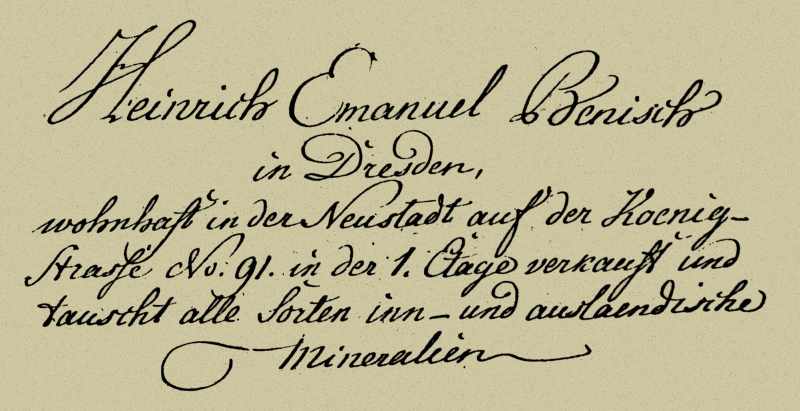 Heinrich Emanuel Benisch
in Dresden,
wohnhaft in der Neustadt auf der Koenig-
strasse No: 91. in der 1. Etage verkauft und
tauscht alle Sorten inn- und auslaendische
Mineralien